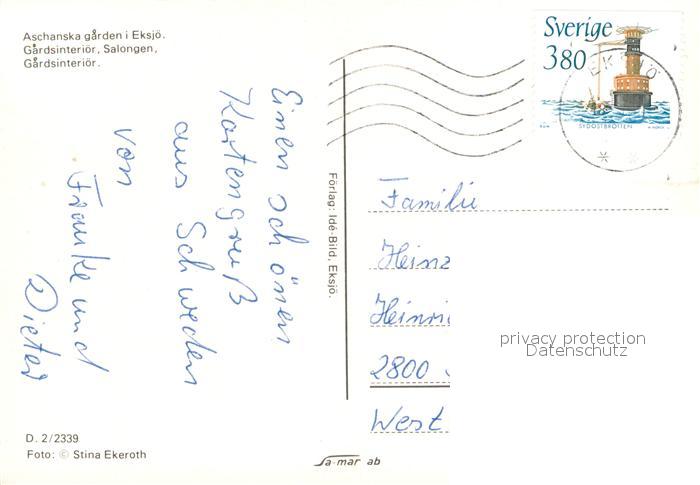 Aschanska gården i Eksjö.
Gårdsinteriör, Salongen,
Gårdsinteriör.
Sverige
380
EKSJÖ
SYDOSTBROTTEN
Einen schönen
Kartengruß
aus Schweden
von
Frauke und
Dieter
Förlag: Idé-Bild, Eksjö.
Familie
Heinz
Heinri
2800
West
privacy protection
Datenschutz
D. 2/2339
Foto: © Stina Ekeroth
Sa-mar ab